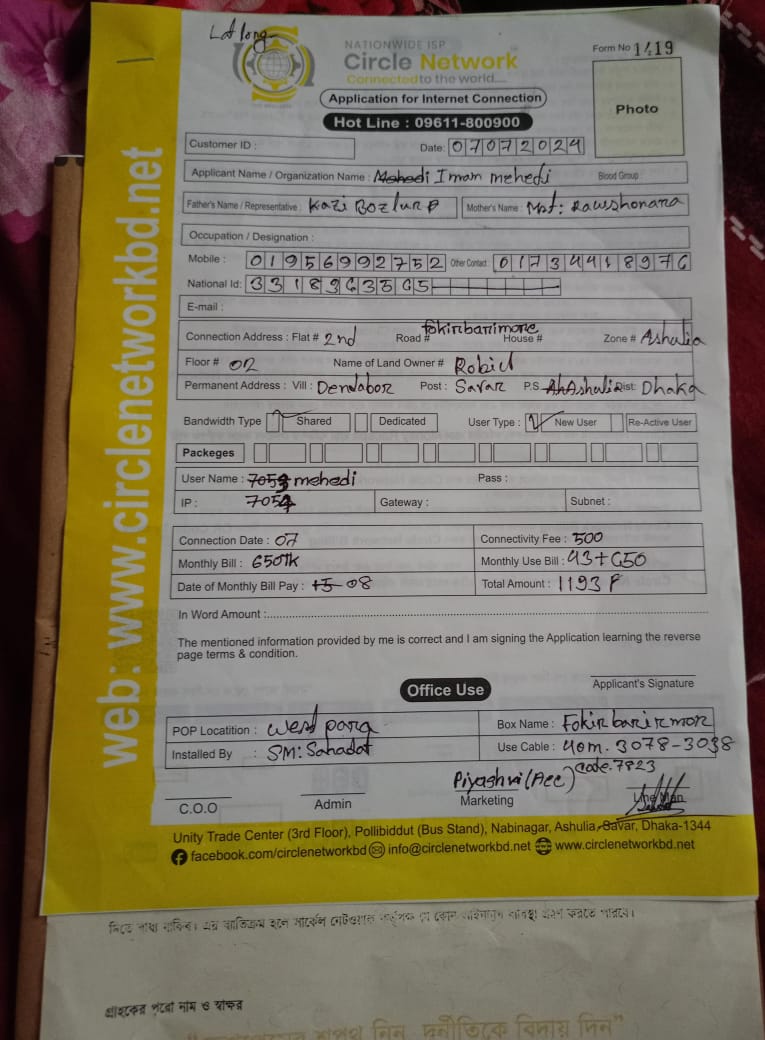 Lat long
NATIONWIDE ISP
Circle Network
Connected to the world....
Form No 1419
Application for Internet Connection
Hot Line : 09611-800900
Photo
Customer ID :
Date: 07072024
Applicant Name / Organization Name : Mehedi Imam mehedi Blood Group :
Father's Name / Representative : Kazi Bozlur Mother's Name : Mst: Rawshonara
Occupation / Designation :
Mobile : 01956992752 Other Contact : 01734418976
National Id: 3318963565
E-mail :
Connection Address : Flat # 2nd Road # fokirbarimore House # Zone # Ashulia
Floor # 02 Name of Land Owner # Robiul
Permanent Address : Vill : Dendabor Post : Savar P.S Ashulia Dist: Dhaka
Bandwidth Type Shared Dedicated User Type : New User Re-Active User
Packeges
User Name : mehedi Pass :
IP : 7054 Gateway : Subnet :
Connection Date : 07 Connectivity Fee : 500
Monthly Bill : 650Tk Monthly Use Bill : 43+650
Date of Monthly Bill Pay : 15 08 Total Amount : 1193
In Word Amount :
The mentioned information provided by me is correct and I am signing the Application learning the reverse
page terms & condition.
Applicant's Signature
Office Use
POP Locatition : West para Box Name : Fokir barirmor
Installed By : SM: Sahadat Use Cable : 40m. 3078-3038
Piyashvi (Acc) Code-7823
C.O.O Admin Marketing Line Man
Unity Trade Center (3rd Floor), Pollibiddut (Bus Stand), Nabinagar, Ashulia, Savar, Dhaka-1344
facebook.com/circlenetworkbd info@circlenetworkbd.net www.circlenetworkbd.net
web: www.circlenetworkbd.net
দিতে বাধ্য থাকিব। এর ব্যতিক্রম হলে সার্কেল নেটওয়ার্ক কর্তৃপক্ষ যে কোন আইনানুগ ব্যবস্থা গ্রহণ করতে পারবে।
গ্রাহকের পুরো নাম ও স্বাক্ষর
শপথ নিন, দুর্নীতিকে বিদায় দিন"